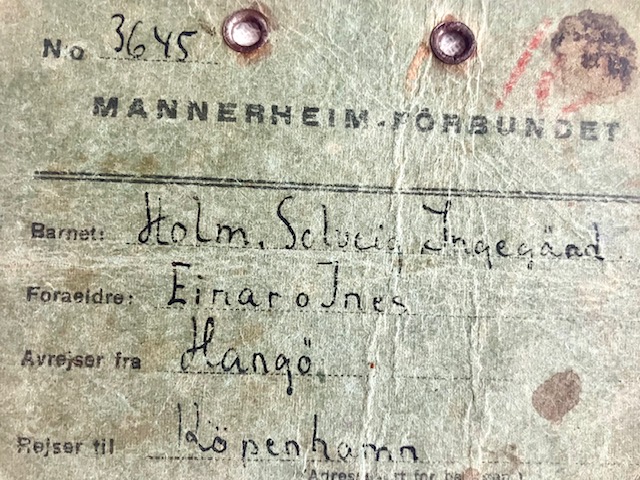 No 3645
MANNERHEIM-FÖRBUNDET
Barnet: Holm, Solveig Ingegärd
Foraeldre: Einar o Ines
Avrejser fra Hangö
Rejser til Köpenhamn